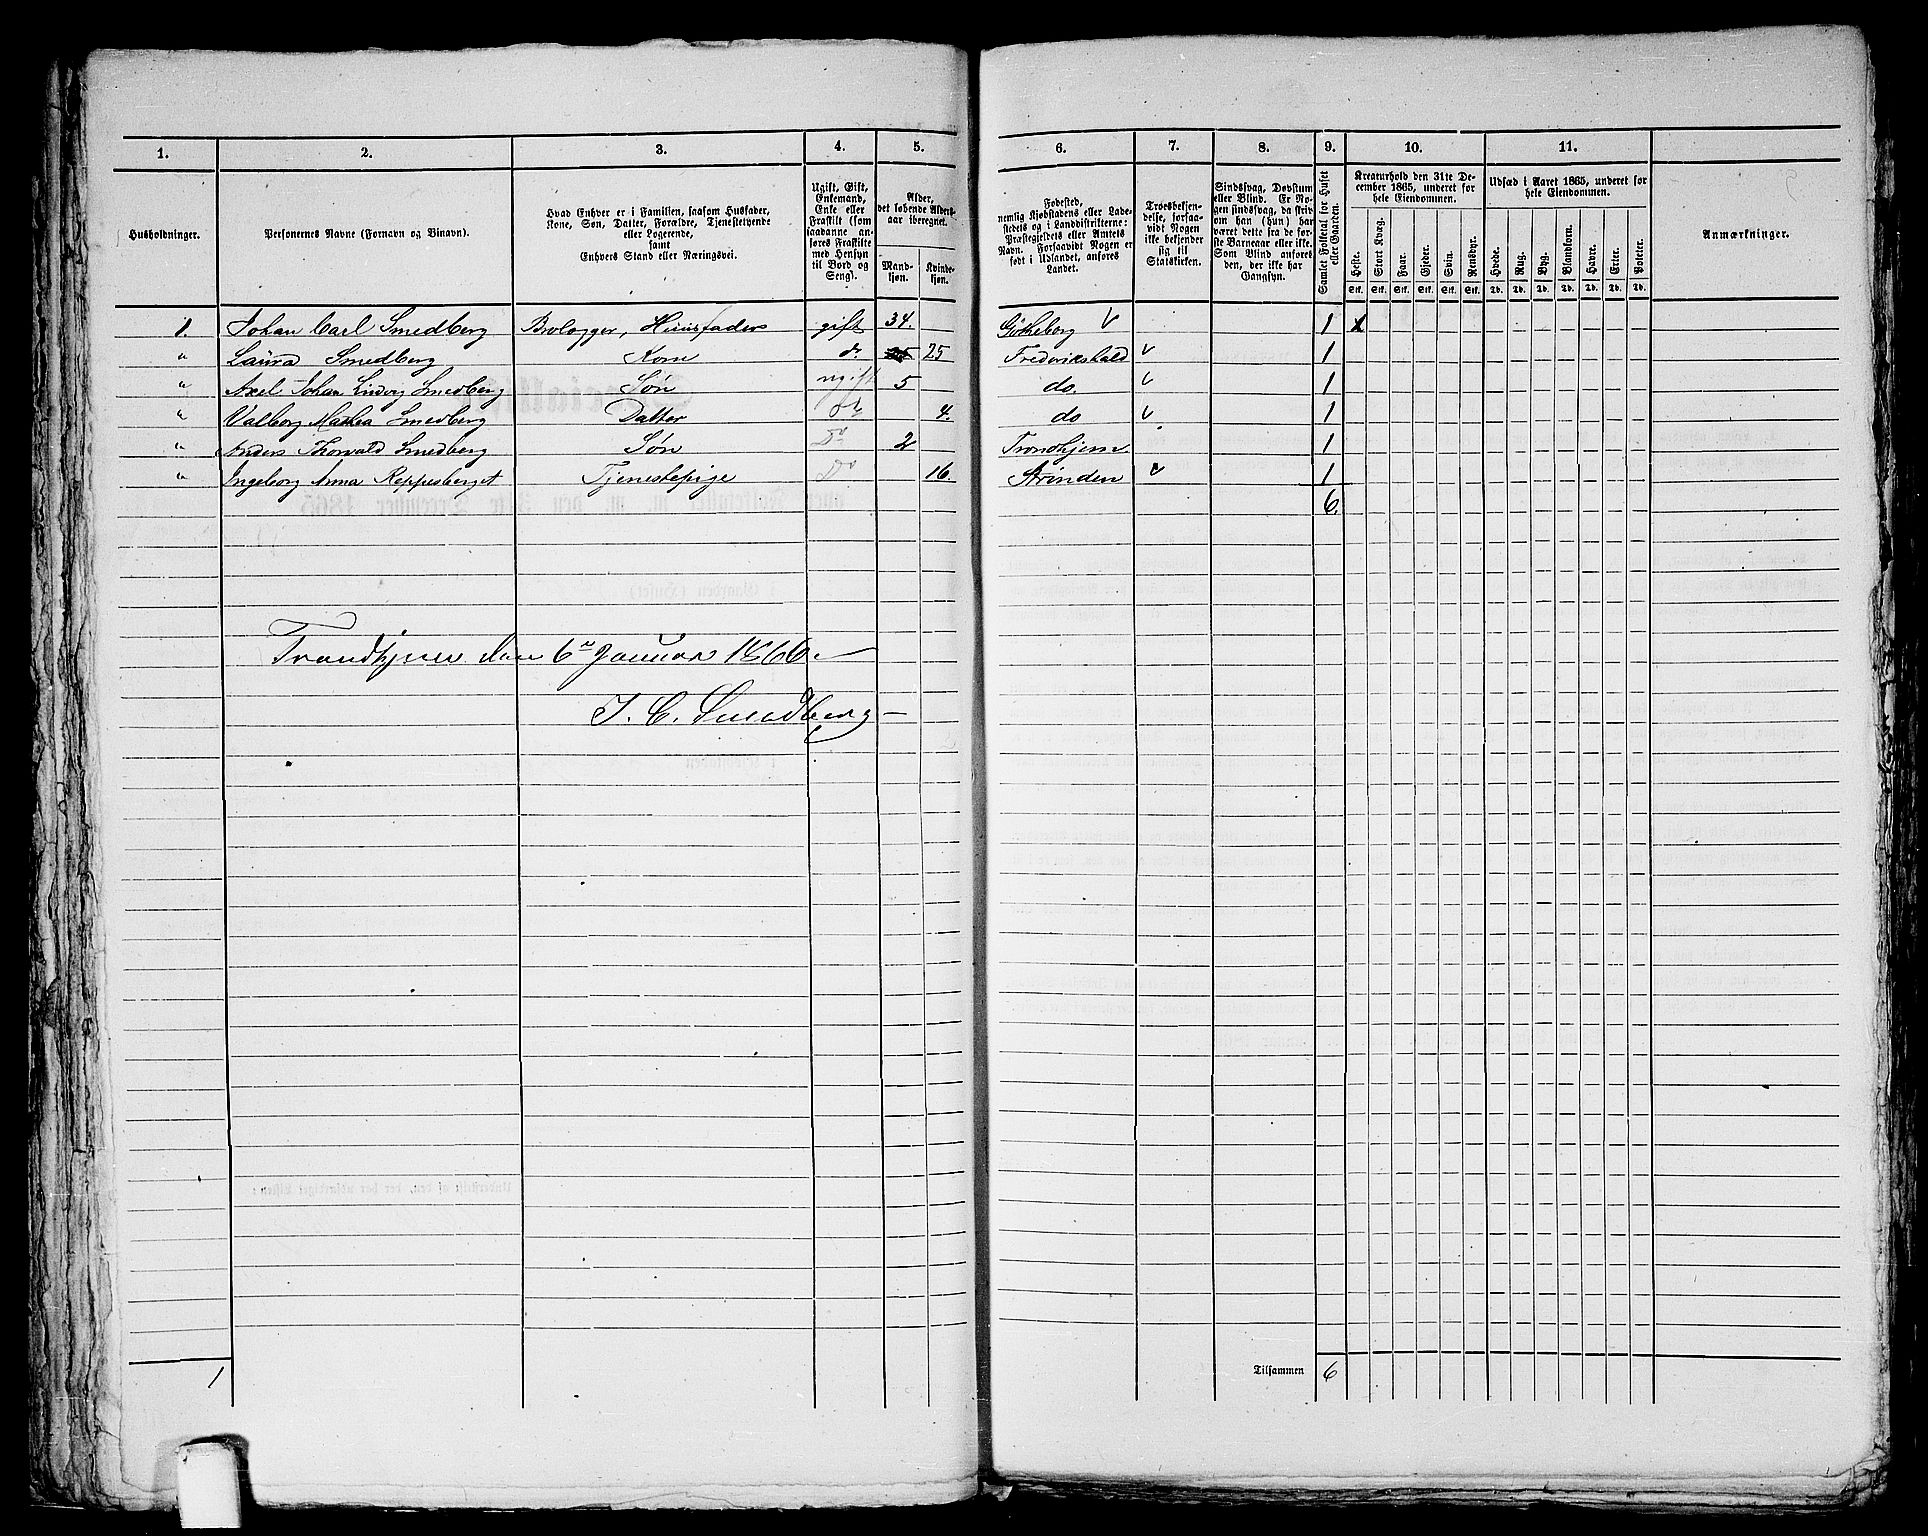 1. 2. 3. 4. 5. 6. 7. 8. 9. 10. 11.
Husholdninger.
Personernes Navne (Fornavn og Binavn).
Hvad Enhver er i Familien, saasom Husfader,
Kone, Søn, Datter, Forældre, Tjenestetyende
eller Logerende,
samt
Enhvers Stand eller Næringsvei.
Ugift, Gift,
Enkemand,
Enke eller
Fraskilt (som
saadanne an-
føres Fraskilte
med Hensyn
til Bord og
Seng).
Alder,
det løbende Alders-
aar iberegnet.
Mand-
kjøn.
Kvinde-
kjøn.
Fødested,
nemlig Kjøbstadens eller Lade-
stedets og i Landdistrikterne:
Præstegjeldets eller Amtets
Navn. Forsaavidt Nogen er
født i Udlandet, anføres
Landet.
Troesbekjen-
delse, forsaa-
vidt Nogen
ikke bekjender
sig til
Statskirken.
Sindssvag, Døvstum
eller Blind. Er No-
gen sindssvag, da skriv
om han (hun) har
været dette fra de før-
ste Barneaar eller ikke.
Som Blind anføres
den, der ikke har
Gangsyn.
Samlet Folketal for Huset
eller Gaarden.
Kreaturhold den 31te De-
cember 1865, underet for
hele Eiendommen.
Heste. Stort Kvæg. Faar. Gjeder. Svin. Rensdyr.
Stk. Stk. Stk. Stk. Stk. Stk.
Udsæd i Aaret 1865, underet for
hele Eiendommen.
Hvede. Rug. Byg. Blandkorn. Havre. Erter. Poteter.
Td. Td. Td. Td. Td. Td. Td.
Anmærkninger.
1. Johan Carl Smedberg gift 34. Götheborg 1
" Laura Smedberg Kone do. 25 Fredrikshald 1
" Axel Johan Ludvig Smedberg Søn ugift 5 do. 1
" Valborg Mathea Smedberg Datter 4. do 1
" Anders Thorvald Smedberg Søn Do 2 Trondhjem 1
" Ingeborg Anna Reppesberget Tjenestepige Do 16. Strinden 1
6.
Trondhjem den 6te Januar 1866.
J. C. Smedberg
1
Tilsammen 6